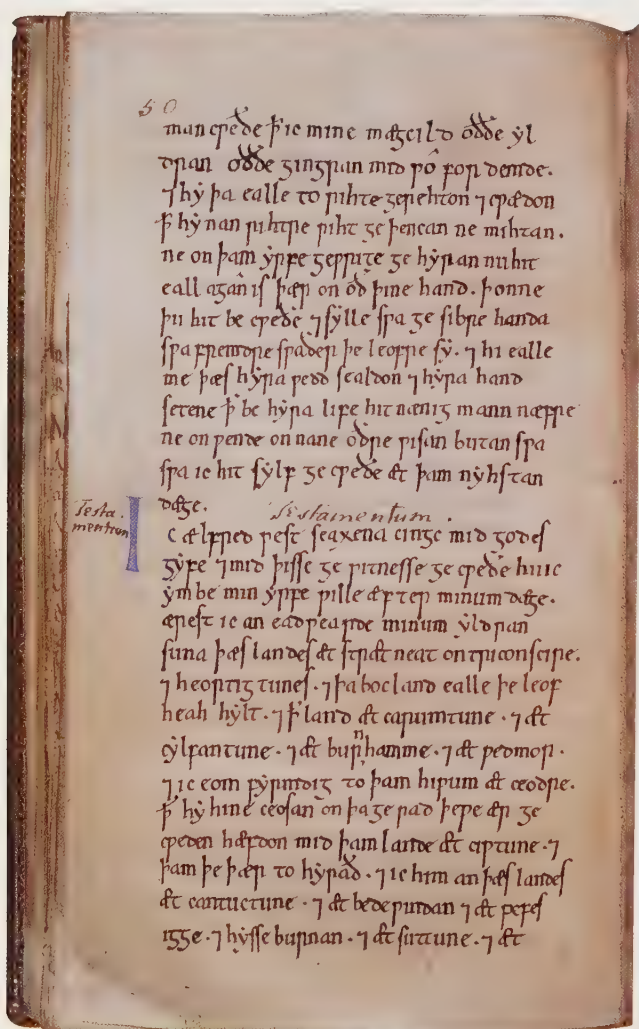 50
man cƿeðe ꝥ ic mine mægcild oððe yl
dran oððe gingran mid wo fordemde.
⁊ hy þa ealle to rihte gerehton ⁊ cƿædon
ꝥ hy nan rihtre riht geþencan ne mihtan.
ne on þam yrfegeƿrite gehyran nu hit
eall agan is þær on oð þine hand. þonne
þu hit becƿeðe ⁊ sylle sƿa gesibre handa
sƿa fremdre sƿaðer þe leofre sy. ⁊ hi ealle
me þæs hyra ƿedd sealdon ⁊ hyra hand
setene ꝥ be hyra life hit nænig mann næfre
ne onƿende on nane oðre ƿisan butan sƿa
sƿa ic hit sylf gecƿeðe æt þam nyhstan
dæge. Testamentum.
Testa
mentum
Ic ælfred ƿest seaxena cinge mid godes
gyfe ⁊ mid þisse geƿitnesse gecƿeðe hu ic
ymbe min yrfe ƿille æfter minum dæge.
ærest ic an eadƿearde minum yldran
suna þæs landes æt strætneat on triconscire.
⁊ heortigtunes. ⁊ þa bocland ealle þe leof
heah hylt. ⁊ ꝥ land æt carumtune. ⁊ æt
cylfantune. ⁊ æt burnhamme. ⁊ æt ƿedmor.
⁊ ic eom fyrmdig to þam hiƿum æt ceodre.
ꝥ hy hine ceosan on þa gerad þe ƿe ær ge
cƿeden hæfdon mid þam lande æt ciƿtune. ⁊
þam þe þær to hyrað. ⁊ ic him an þæs landes
æt cantuctune. ⁊ æt bedeƿindan ⁊ æt ƿefes
igge. ⁊ hysseburnan. ⁊ æt suttune. ⁊ æt